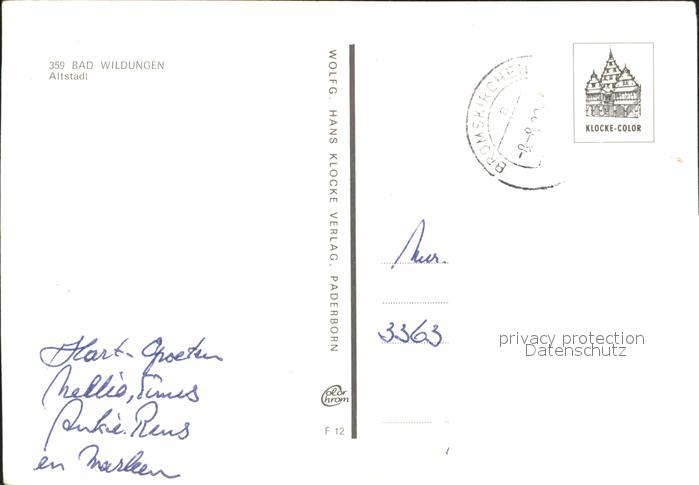 359 BAD WILDUNGEN
Altstadt
WOLFG. HANS KLOCKE VERLAG, PADERBORN
color
chrom
F 12
BROMSKIRCHEN
a
KLOCKE-COLOR
3363
privacy protection
Datenschutz
Hart. Groeten
Nellie, Timus
Ankie. Rens
en Marleen